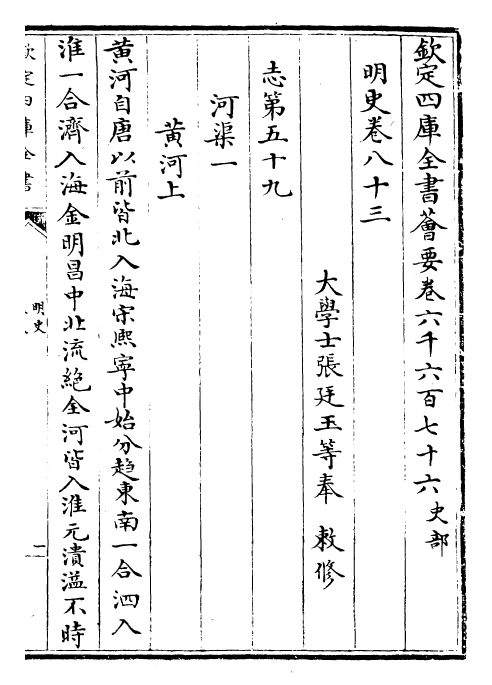 欽定四庫全書薈要卷六千六百七十六史部
明史卷八十三
大學士張廷玉等奉敕修
志第五十九
河渠一
黃河上
黃河自唐以前皆北入海宋熙寧中始分趨東南一合泗入
淮一合濟入海金明昌中北流絕全河皆入淮元潰溢不時
欽定四庫全書
明史